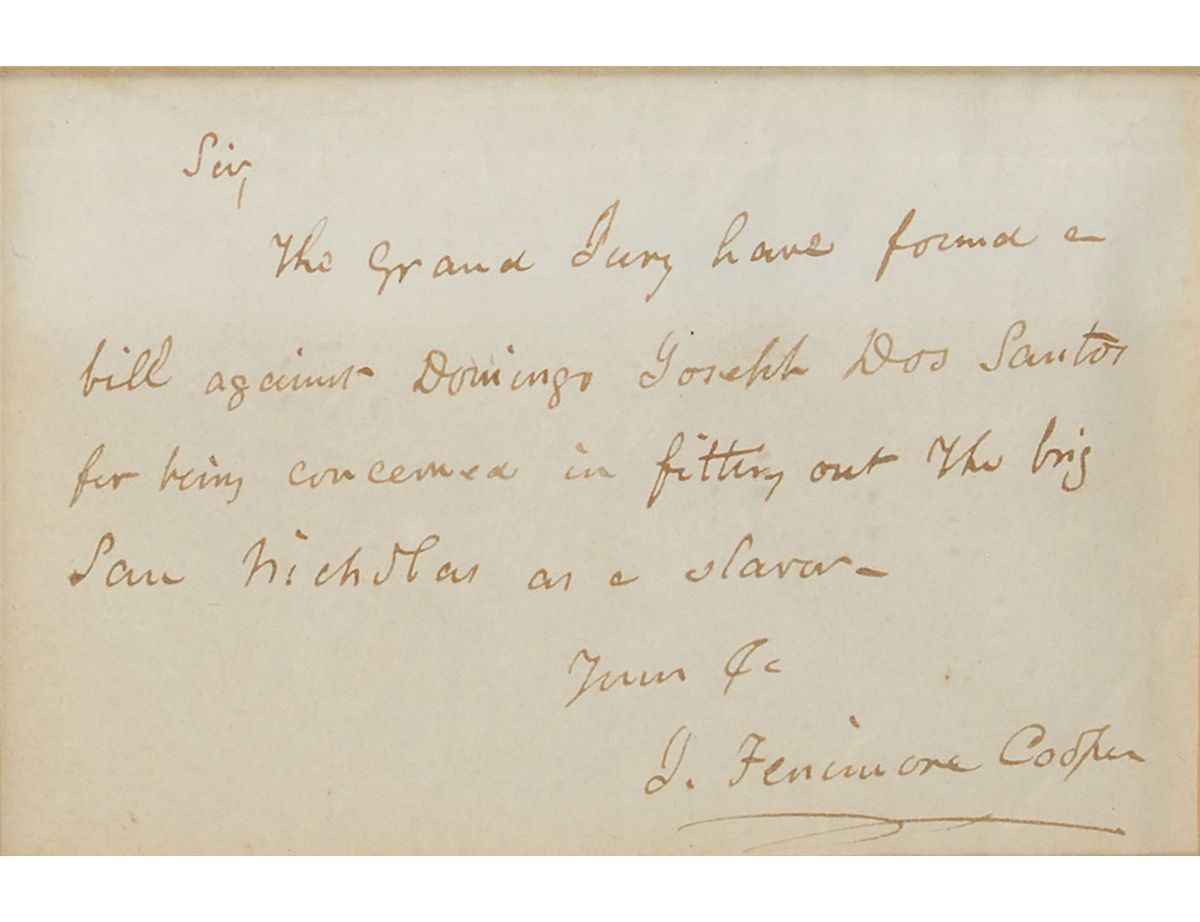 Sir,
The Grand Jury have found a
bill against Domingo Joseph Dos Santos
for being concerned in fitting out the brig
San Nicholas as a slaver—
Yours &c
J. Fenimore Cooper